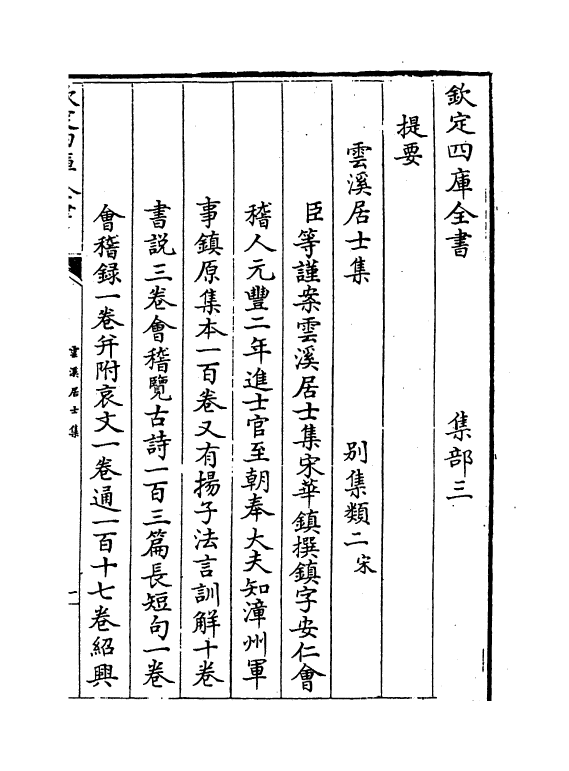 欽定四庫全書　　　　　集部三
提要
雲溪居士集　　　　　别集類二宋
臣等謹案雲溪居士集宋華鎮撰鎮字安仁會
稽人元豐二年進士官至朝奉大夫知漳州軍
事鎮原集本一百卷又有揚子法言訓解十卷
書説三卷會稽覽古詩一百三篇長短句一卷
會稽録一卷并附哀文一卷通一百十七卷紹興
雲溪居士集